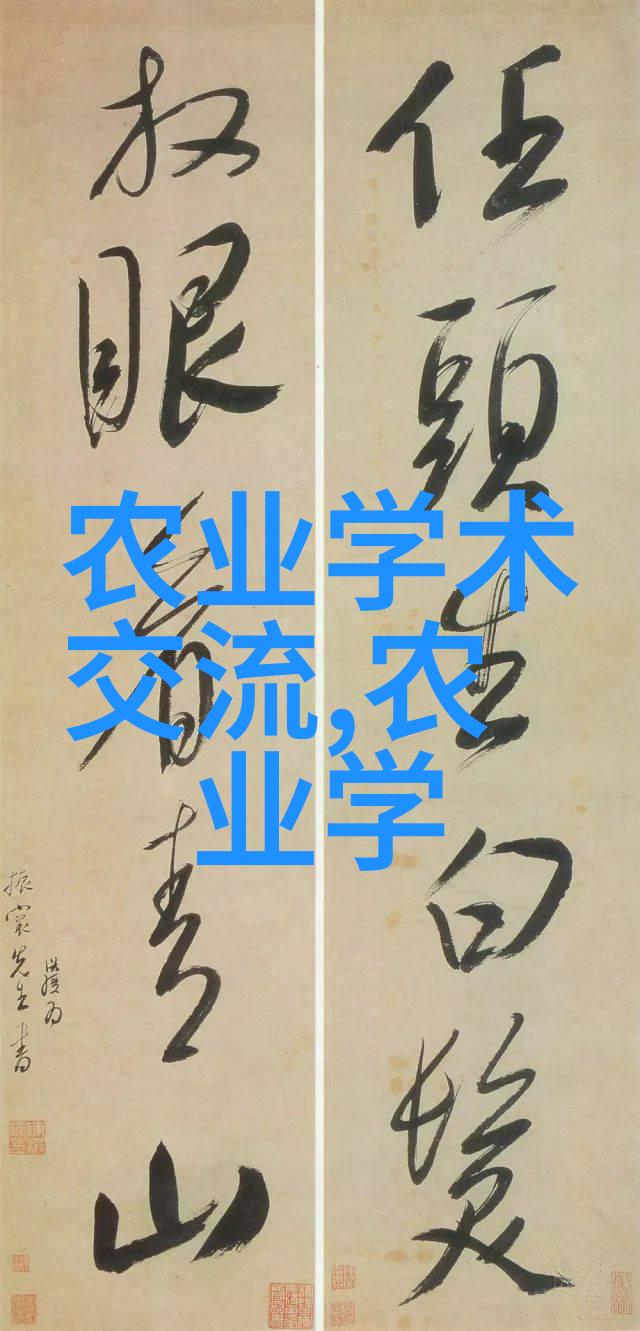 任頭生白髮
放眼看青山
振裳先生書
农业学术
交流,农
业学